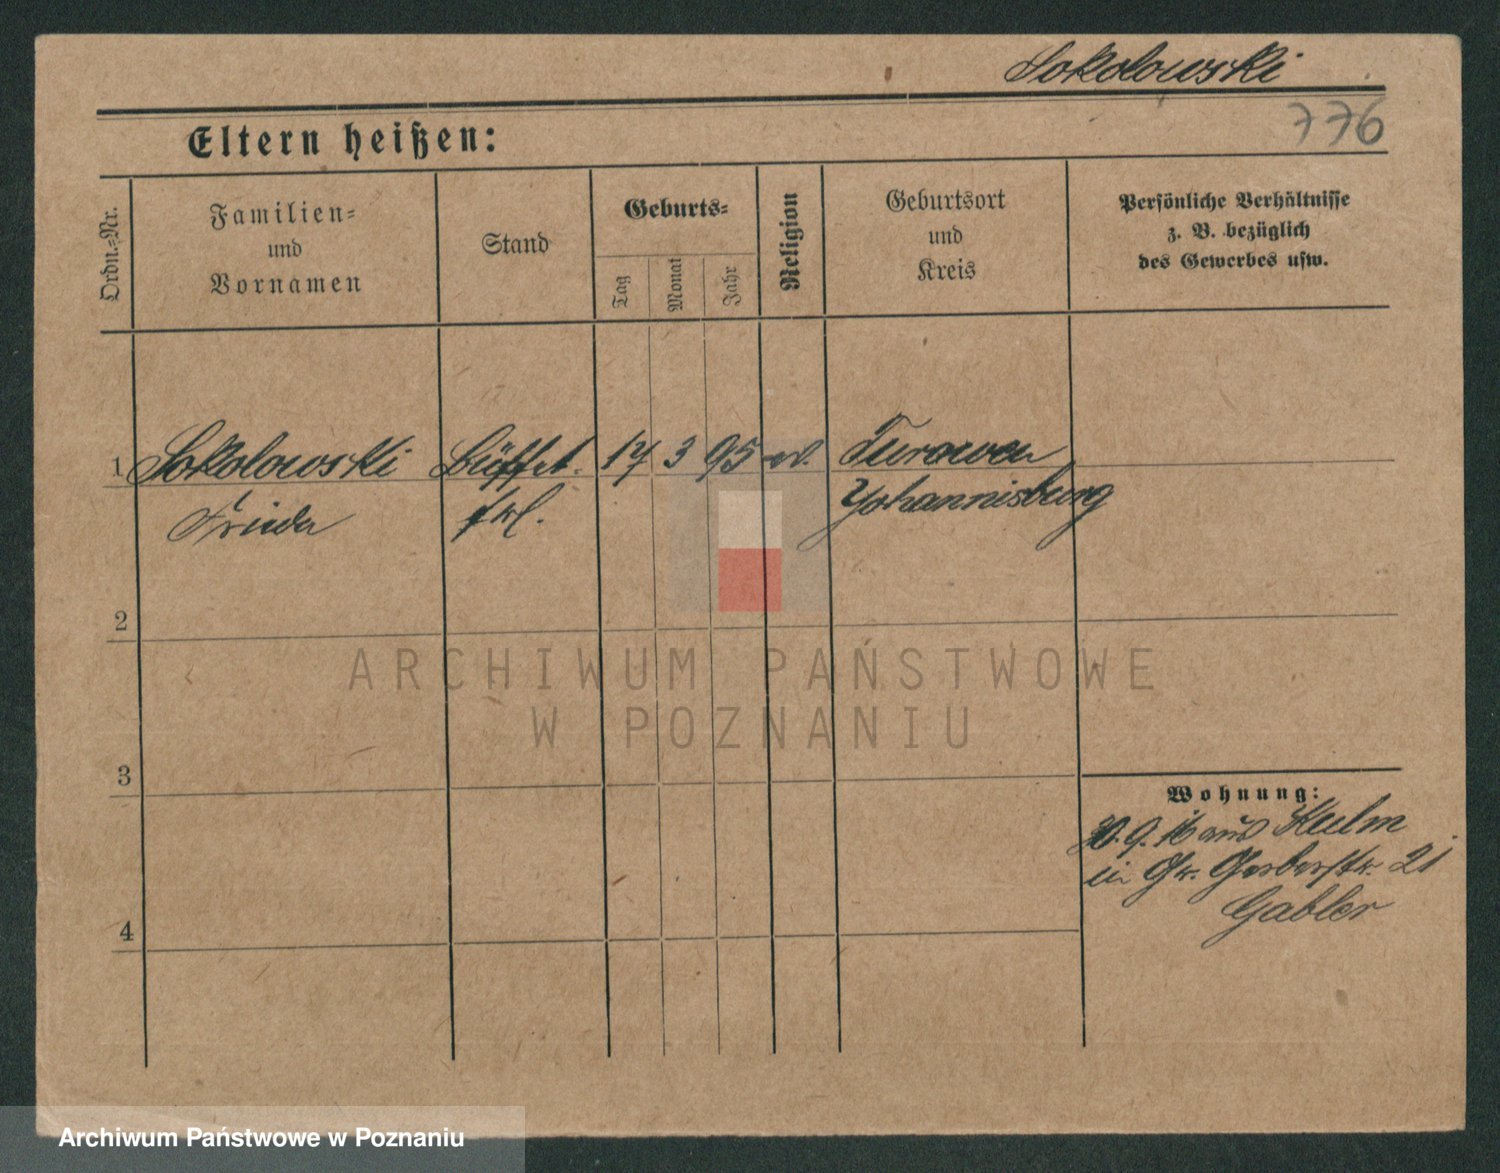 Sokolowski
776
Eltern heißen:
Ordn.=Nr.
Familien=
und
Vornamen
Stand
Geburts=
Tag
Monat
Jahr
Religion
Geburtsort
und
Kreis
Persönliche Verhältnisse
z. B. bezüglich
des Gewerbes usw.
1 Sokolowski Büffet. 17 3 95 ev. Turowen
Frieda frl. Johannisburg
2
3
4
Wohnung:
30.9.16 aus Kulm
in Gr. Gerberstr. 21
Gabler
ARCHIWUM PAŃSTWOWE
W POZNANIU
Archiwum Państwowe w Poznaniu